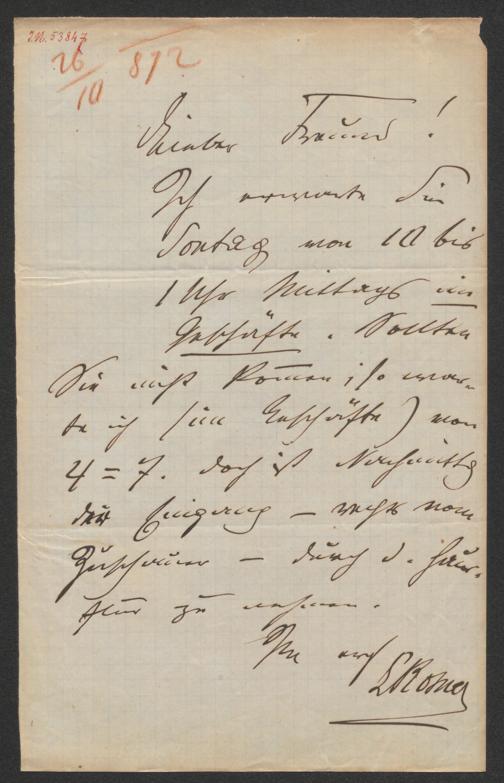 I.N. 53847
26/10 872
Lieber Freund!
Ich erwarte Sie
Sontag von 10 bis
1 Uhr Mittags im
Geschäfte. Sollten
Sie nicht kom̅en, so war-
te ich (im Geschäfte) von
4=7. doch ist Nachmittg
der Eingang – rechts vom
Zuschauer – durch d. Haus-
flur zu nehmen.
Ihr erg
LRosner